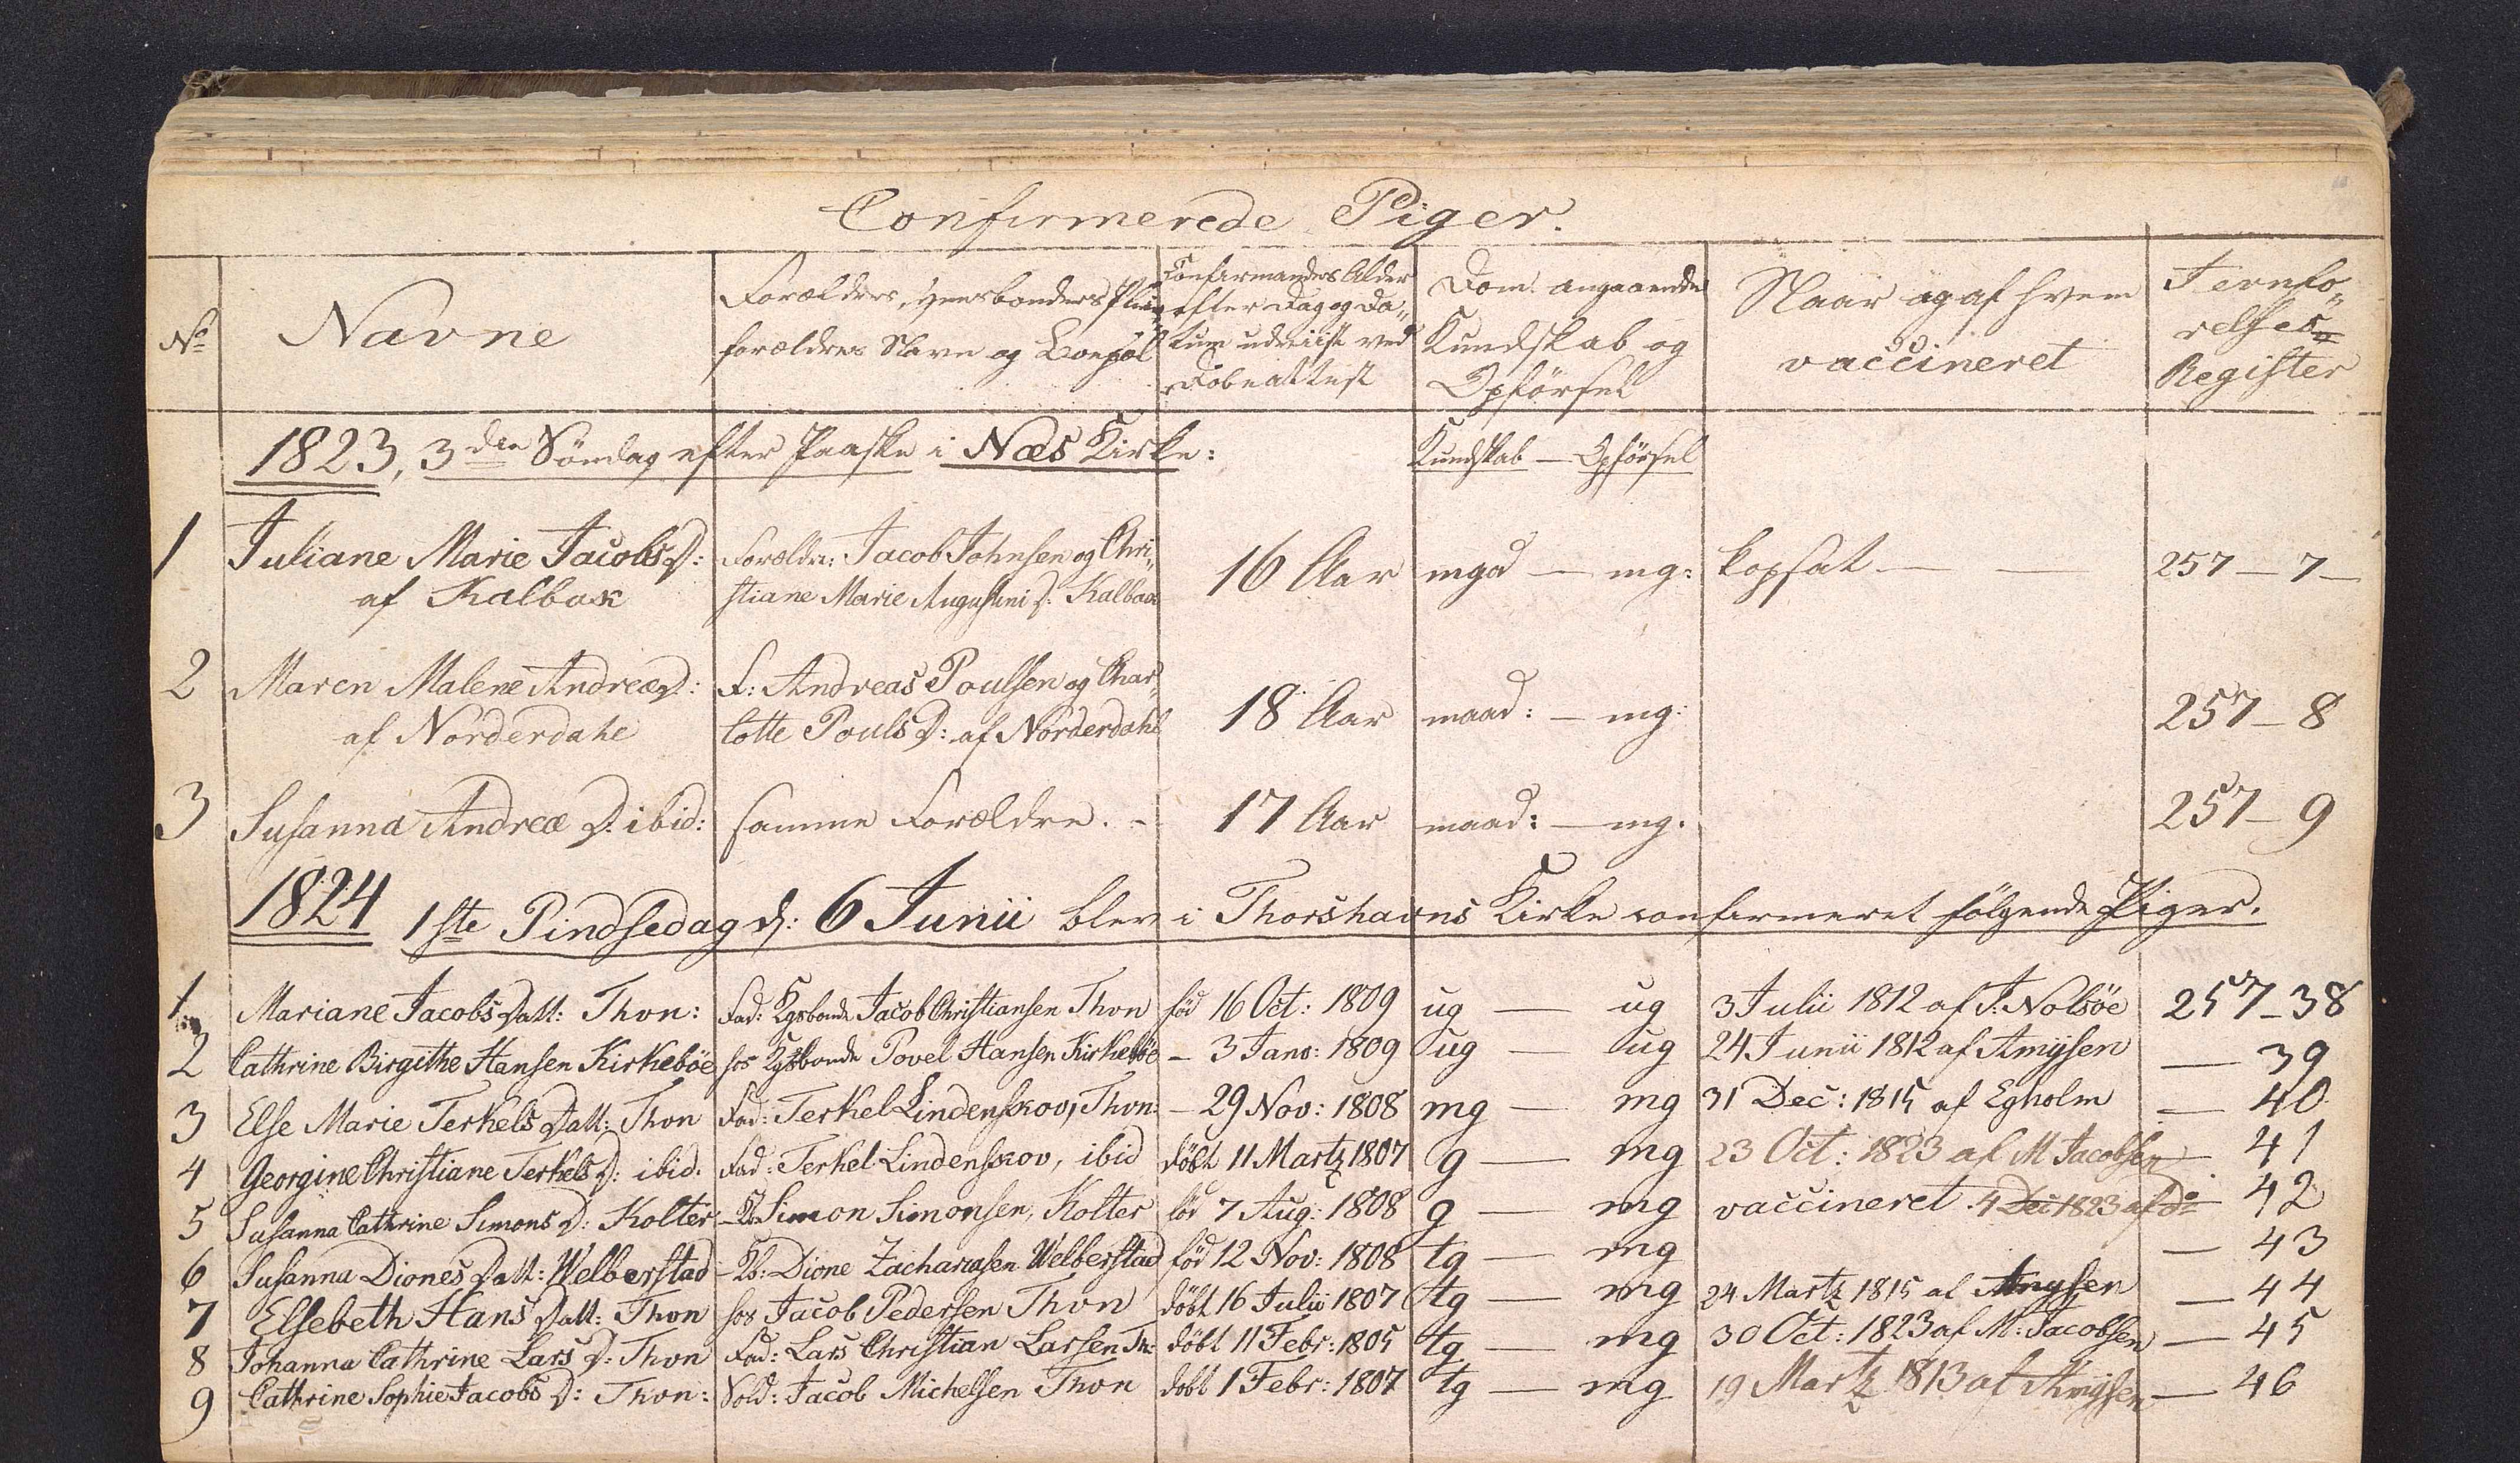 Confirmerede Piger.
No Navne Forældres, Huusbonders Pleie„ forældres Navn og Boepæl Confirmandens Alder efter Dag og Da„ tum udviist ved Döbeattest Dom angaaende Kundskab og Opförsel Naar og af hvem vaccineret Jevnfö„ relses Register
1823, 3die Söndag efter Paaske i Næs Kirke: Kundskab — Opförsel
1 Juliane Marie Jacobs D: Forældre: Jacob Johnsen og Chri„ 16 Aar mgod — mg: kopsat — — 257 — 7 —
af Kalbak stiane Marie Augustini D: Kalbak
2 Maren Malene Andreæ D: F: Andreas Poulsen og Char„ 18 Aar maad: — mg: 257 — 8
af Norderdahl lotte Pouls D: af Norderdahl
3 Susanna Andreæ D: ibid: samme Forældre. — 17 Aar maad: — mg. 257 — 9
1824 1ste Pindsedag d: 6 Junii blev i Thorshavns Kirke confirmeret fölgende Piger.
1 Mariane Jacobs Datt: Thvn: Fad: Kgsbonde Jacob Christiansen Thvn fød 16 Oct: 1809 ug — ug 3 Julii 1812 af J: Nolsöe 257 — 38
2 Cathrine Birgithe Hansen Kirkeböe hos Kgsbonde Povel Hansen Kirkeböe — 3 Janv: 1809 ug — ug 24 Junii 1812 af Amysen — 39
3 Else Marie Terkels Datt: Thvn Fad: Terkel Lindenskov, Thvn: — 29 Nov: 1808 mg — mg 31 Dec: 1815 af Egholm — 40
4 Georgine Christiane Terkels D: ibid. Fad: Terkel Lindenskov, ibid döbt 11 Martz 1807 g — mg 23 Oct: 1823 af M Jacobsen — 41
5 Susanna Cathrine Simons D: Kolter — Kb Simon Simonsen, Kolter fød 7 Aug: 1808 g — mg vaccineret. 4 Dec 1823 af Do — 42
6 Susanna Diones Datt: Welberstad — Kb: Dione Zachariasen Welberstad fød 12 Nov: 1808 tg — mg — 43
7 Elsebeth Hans Datt: Thvn hos Jacob Pedersen Thvn döbt 16 Julii 1807 tg — mg 24 Martz 1815 af Amysen — 44
8 Johanna Cathrine Lars D: Thvn Fad: Lars Christian Larsen Th: döbt 11 Febr: 1805 tg — mg 30 Oct: 1823 af M: Jacobsen — 45
9 Cathrine Sophie Jacobs D: Thvn: Sold: Jacob Michelsen Thvn döbt 1 Febr: 1807 tg — mg 19 Martz 1813 af Amysen — 46